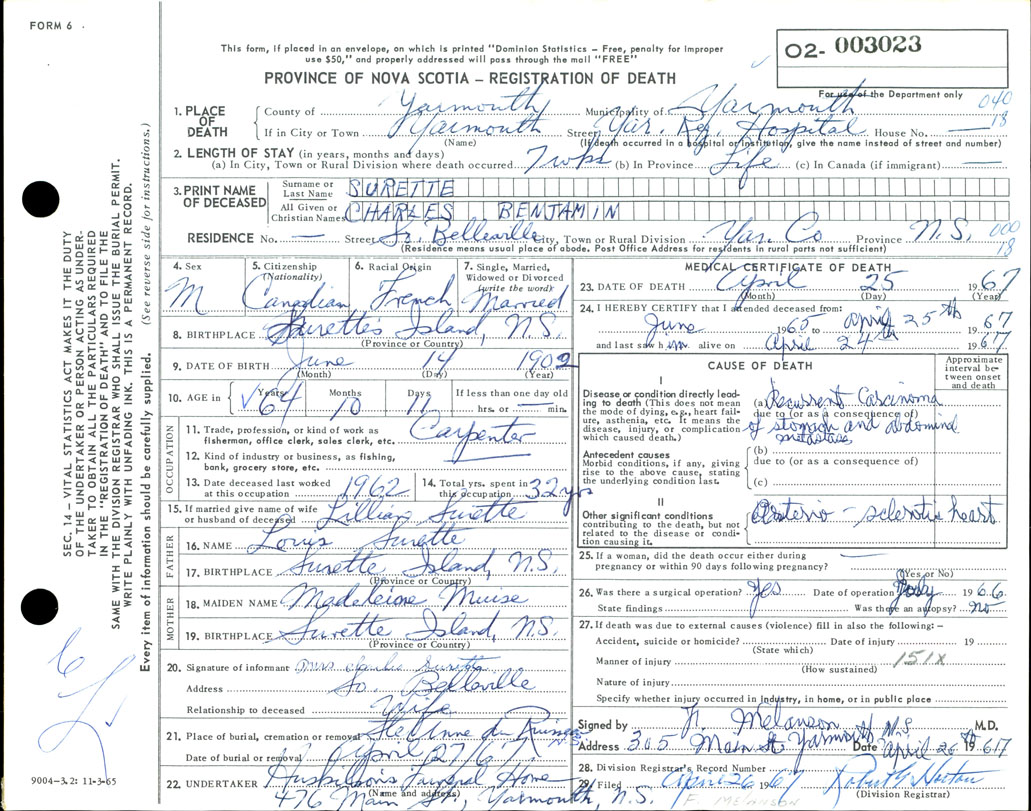 FORM 6
This form, if placed in an envelope, on which is printed "Dominion Statistics – Free, penalty for improper
use $50," and properly addressed will pass through the mail "FREE"
O2- 003023
PROVINCE OF NOVA SCOTIA – REGISTRATION OF DEATH
For use of the Department only
040
18
1. PLACE OF DEATH
County of Yarmouth Municipality of Yarmouth
If in City or Town Yarmouth Street Yar. Reg. Hospital House No. —
(Name) (If death occurred in a hospital or institution, give the name instead of street and number)
2. LENGTH OF STAY (in years, months and days)
(a) In City, Town or Rural Division where death occurred 7 wks (b) In Province Life (c) In Canada (if immigrant) —
3. PRINT NAME OF DECEASED
Surname or Last Name SURETTE
All Given or Christian Names CHARLES BENJAMIN
RESIDENCE No. — Street So. Belleville City, Town or Rural Division Yar. Co Province N.S.
000
18
(Residence means usual place of abode. Post Office Address for residents in rural parts not sufficient)
4. Sex M
5. Citizenship (Nationality) Canadian
6. Racial Origin French
7. Single, Married, Widowed or Divorced (write the word) Married
8. BIRTHPLACE Surette's Island, N.S.
(Province or Country)
9. DATE OF BIRTH June 14 1902
(Month) (Day) (Year)
10. AGE in Years 64 Months 10 Days 11 If less than one day old
hrs. or — min.
OCCUPATION
11. Trade, profession, or kind of work as fisherman, office clerk, sales clerk, etc. Carpenter
12. Kind of industry or business, as fishing, bank, grocery store, etc.
13. Date deceased last worked at this occupation 1962
14. Total yrs. spent in this occupation 32 yrs
15. If married give name of wife or husband of deceased Lillian Surette
FATHER
16. NAME Louis Surette
17. BIRTHPLACE Surette Island, N.S.
(Province or Country)
MOTHER
18. MAIDEN NAME Madeleine Muise
19. BIRTHPLACE Surette Island, N.S.
(Province or Country)
20. Signature of informant Mrs Charlie Surette
Address So. Belleville
Relationship to deceased Wife
21. Place of burial, cremation or removal Ste Anne du Ruisseau
Date of burial or removal April 27/67
22. UNDERTAKER Huskilson's Funeral Home
(Name and address)
476 Main St., Yarmouth, N.S.
MEDICAL CERTIFICATE OF DEATH
23. DATE OF DEATH April 25 1967
(Month) (Day) (Year)
24. I HEREBY CERTIFY that I attended deceased from:
June 1965 to April 25th 1967
and last saw him alive on April 24th 1967
CAUSE OF DEATH
Approximate interval between onset and death
I
Disease or condition directly leading to death (This does not mean the mode of dying, e.g., heart failure, asthenia, etc. It means the disease, injury, or complication which caused death.)
(a) Recurrent Carcinoma
due to (or as a consequence of)
of stomach and abdominal
metastases
Antecedent causes
Morbid conditions, if any, giving rise to the above cause, stating the underlying condition last.
(b)
due to (or as a consequence of)
(c)
II
Other significant conditions
contributing to the death, but not related to the disease or condition causing it.
Arterio - sclerotic heart
25. If a woman, did the death occur either during
pregnancy or within 90 days following pregnancy? —
(Yes or No)
26. Was there a surgical operation? Yes Date of operation 1966
State findings Was there an autopsy? No
27. If death was due to external causes (violence) fill in also the following: –
Accident, suicide or homicide? Date of injury 19
(State which)
Manner of injury 151X
(How sustained)
Nature of injury
Specify whether injury occurred in industry, in home, or in public place
Signed by F. Melanson M.D.
Address 305 Main St Yarmouth N.S. Date April 26th 1967
28. Division Registrar's Record Number
29. Filed April 26 1967
(Division Registrar)
F. MELANSON
SEC. 14 – VITAL STATISTICS ACT MAKES IT THE DUTY
OF THE UNDERTAKER OR PERSON ACTING AS UNDER-
TAKER TO OBTAIN ALL THE PARTICULARS REQUIRED
IN THE "REGISTRATION OF DEATH" AND TO FILE THE
SAME WITH THE DIVISION REGISTRAR WHO SHALL ISSUE THE BURIAL PERMIT.
WRITE PLAINLY WITH UNFADING INK. THIS IS A PERMANENT RECORD.
Every item of information should be carefully supplied. (See reverse side for instructions.)
9004–3.2: 11-3-65